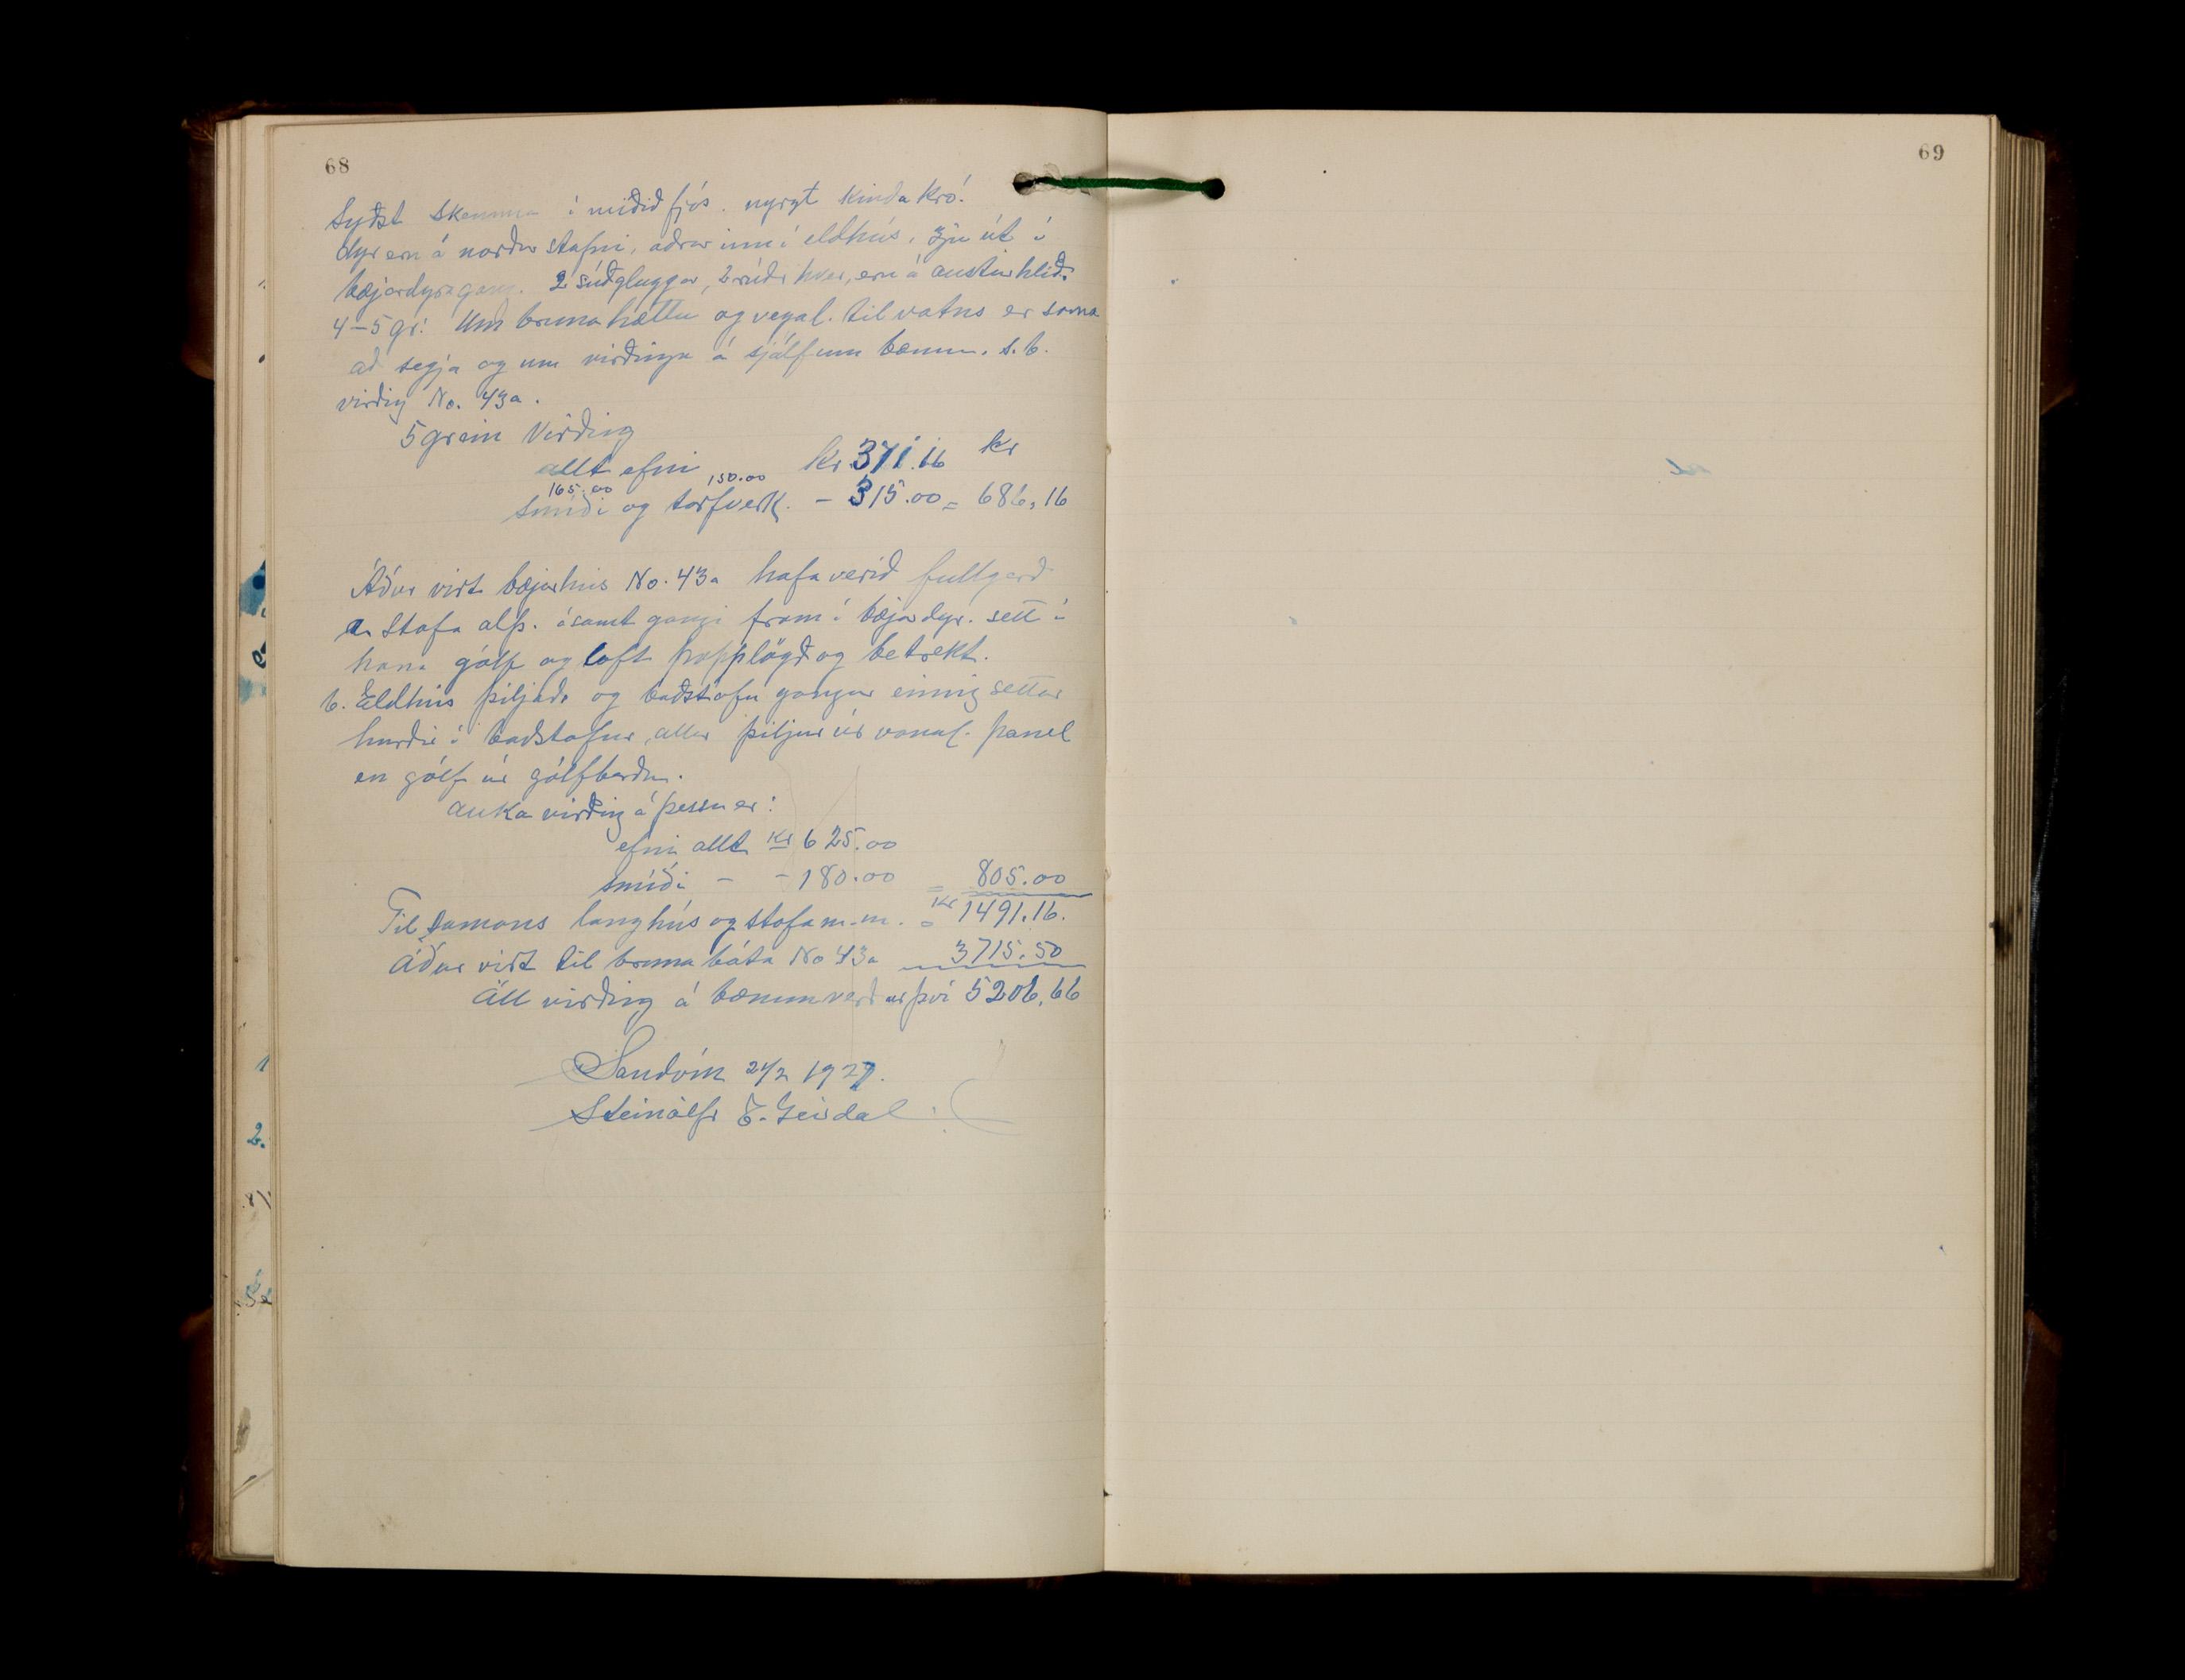 68
Syðst skemma í miðið fjós. nyrzt kinda kró.
dyr eru á norður stafni, aðrar inn í eldhús, 3ju út í
bæjardyragang. 2 súðgluggar, 2 rúðr hver, eru á austurhlið.
4-5 gr: Um bruna hættu og vegal. til vatns er sama
að segja og um virðingu á sjálfum bænum. s.b.
virðing No. 43a.
5 grein Virðing
allt efni Kr 371.16 Kr
165.00 150.00
smíði og torfverk. - 315.00 = 686,16
Áður virt bæjarhús No. 43a hafa verið fullgerð
a. Stofa alþ. ásamt gangi fram í bæjardyr. sett í
hana gólf og loft papplögð og betrekt.
b. Eldhús þiljað og baðstofu gangur einnig settar
hurðir í baðstofur, allar þiljur úr vanal. panel
en gólf úr gólfborðum.
auka virðing á þessu er:
efni allt Kr 625.00
smíði - - 180.00 = 805.00
Til samans langhús og stofa m.m. = Kr 1491.16.
Áður virt til bruna bóta No 43a 3715.50
Öll virðing á bænum verður því 5206,66
Sandvík 24/2 1927.
Steinólfr E. Geirdal
69